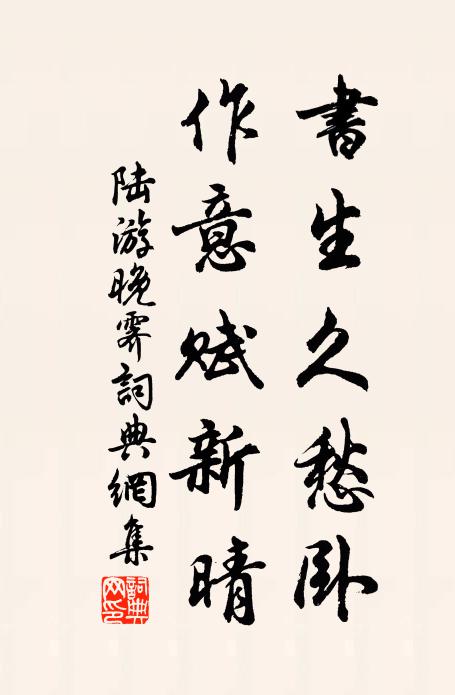 書生久愁卧
作意賦新晴
陸游晚霽詞典網集
詞典網印